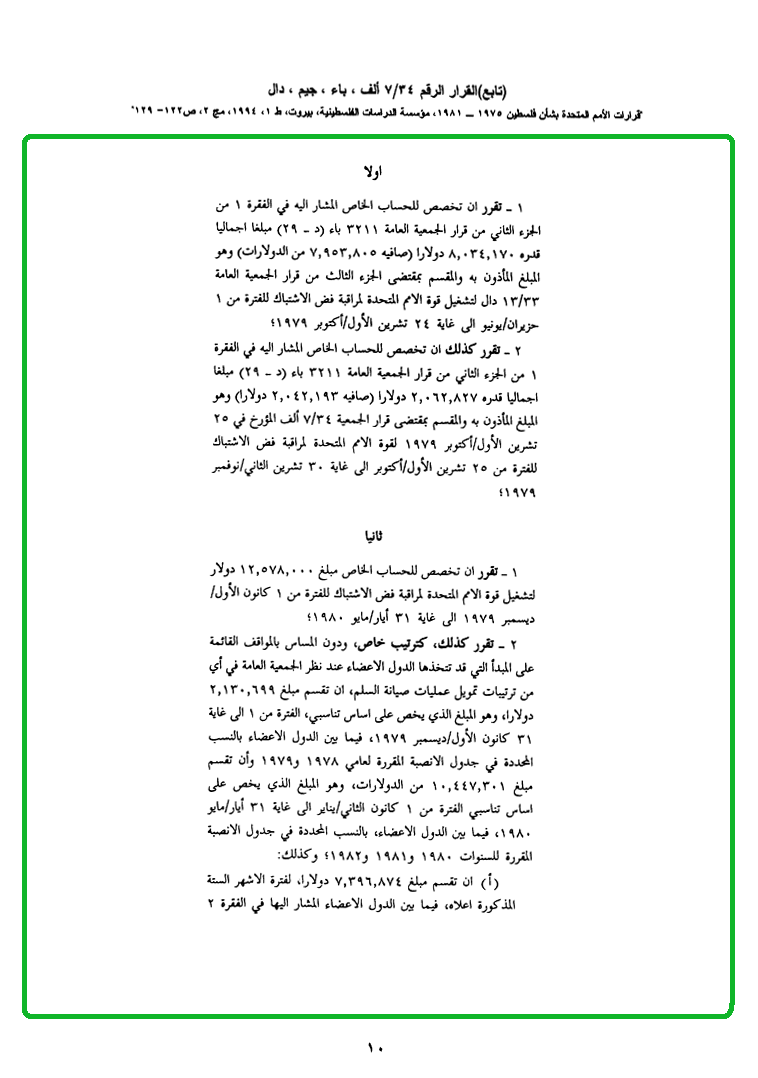 (تابع)القرار الرقم ٧/٣٤ ألف ، باء ، جيم ، دال
"قرارات الأمم المتحدة بشأن فلسطين ١٩٧٥ ــ ١٩٨١، مؤسسة الدراسات الفلسطينية، بيروت، ط ١، ١٩٩٤، مج ٢، ص١٢٢- ١٢٩"
اولا
١ ـ تقرر ان تخصص للحساب الخاص المشار اليه في الفقرة ١ من
الجزء الثاني من قرار الجمعية العامة ٣٢١١ باء (د ـ ٢٩) مبلغا اجماليا
قدره ٨,٠٣٤,١٧٠ دولارا (صافيه ٧,٩٥٣,٨٠٥ من الدولارات) وهو
المبلغ المأذون به والمقسم بمقتضى الجزء الثالث من قرار الجمعية العامة
١٣/٣٣ دال لتشغيل قوة الامم المتحدة لمراقبة فض الاشتباك للفترة من ١
حزيران/يونيو الى غاية ٢٤ تشرين الأول/أكتوبر ١٩٧٩؛
٢ ـ تقرر كذلك ان تخصص للحساب الخاص المشار اليه في الفقرة
١ من الجزء الثاني من قرار الجمعية العامة ٣٢١١ باء (د ـ ٢٩) مبلغا
اجماليا قدره ٢,٠٦٢,٨٢٧ دولارا (صافيه ٢,٠٤٢,١٩٣ دولارا) وهو
المبلغ المأذون به والمقسم بمقتضى قرار الجمعية ٧/٣٤ ألف المؤرخ في ٢٥
تشرين الأول/أكتوبر ١٩٧٩ لقوة الامم المتحدة لمراقبة فض الاشتباك
للفترة من ٢٥ تشرين الأول/أكتوبر الى غاية ٣٠ تشرين الثاني/نوفمبر
١٩٧٩؛
ثانيا
١ ـ تقرر ان تخصص للحساب الخاص مبلغ ١٢,٥٧٨,٠٠٠ دولار
لتشغيل قوة الامم المتحدة لمراقبة فض الاشتباك للفترة من ١ كانون الأول/
ديسمبر ١٩٧٩ الى غاية ٣١ أيار/مايو ١٩٨٠؛
٢ ـ تقرر كذلك، كترتيب خاص، ودون المساس بالمواقف القائمة
على المبدأ التي قد تتخذها الدول الاعضاء عند نظر الجمعية العامة في أي
من ترتيبات تمويل عمليات صيانة السلم، ان تقسم مبلغ ٢,١٣٠,٦٩٩
دولارا، وهو المبلغ الذي يخص على اساس تناسبي، الفترة من ١ الى غاية
٣١ كانون الأول/ديسمبر ١٩٧٩، فيما بين الدول الاعضاء بالنسب
المحددة في جدول الانصبة المقررة لعامي ١٩٧٨ و١٩٧٩ وأن تقسم
مبلغ ١٠,٤٤٧,٣٠١ من الدولارات، وهو المبلغ الذي يخص على
اساس تناسبي الفترة من ١ كانون الثاني/يناير الى غاية ٣١ أيار/مايو
١٩٨٠، فيما بين الدول الاعضاء، بالنسب المحددة في جدول الانصبة
المقررة للسنوات ١٩٨٠ و١٩٨١ و١٩٨٢؛ وكذلك:
(أ) ان تقسم مبلغ ٧,٣٩٦,٨٧٤ دولارا، لفترة الاشهر الستة
المذكورة اعلاه، فيما بين الدول الاعضاء المشار اليها في الفقرة ٢
١٠